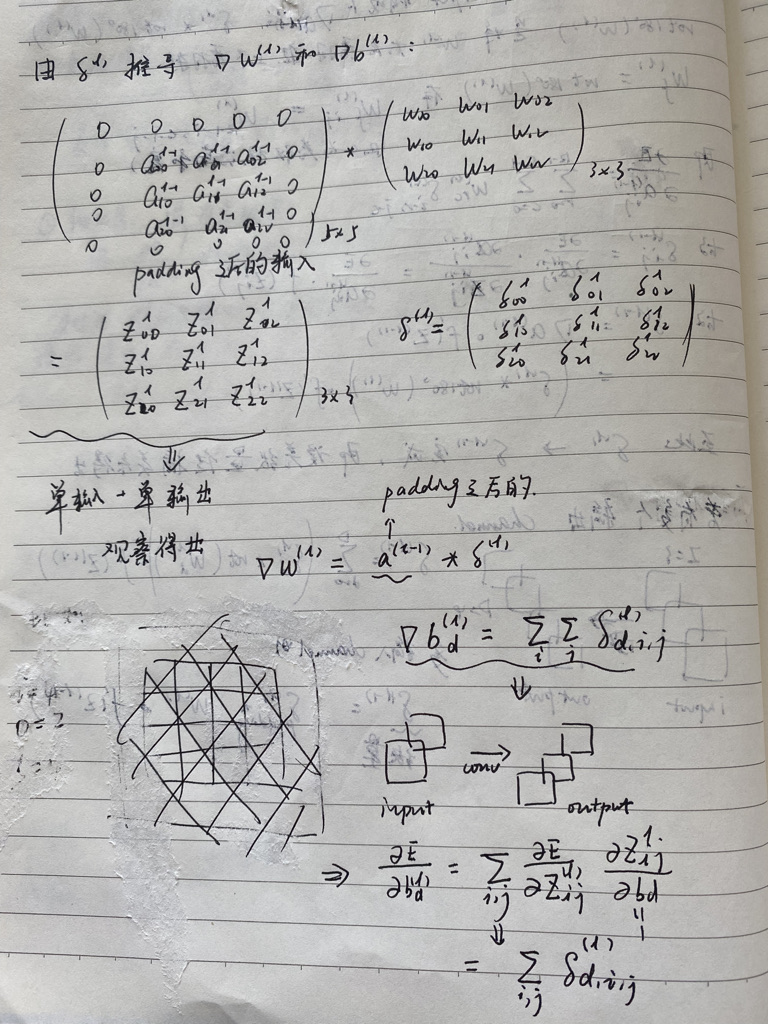 由 δ⁽ˡ⁾ 推导 ∇W⁽ˡ⁾ 和 ∇b⁽ˡ⁾:
( 0 0 0 0 0
0 a₀₀ˡ⁻¹ a₀₁ˡ⁻¹ a₀₂ˡ⁻¹ 0
0 a₁₀ˡ⁻¹ a₁₁ˡ⁻¹ a₁₂ˡ⁻¹ 0
0 a₂₀ˡ⁻¹ a₂₁ˡ⁻¹ a₂₂ˡ⁻¹ 0
0 0 0 0 0 ) 5x5
*
( W₀₀ W₀₁ W₀₂
W₁₀ W₁₁ W₁₂
W₂₀ W₂₁ W₂₂ ) 3x3
padding 之后的输入
= ( Z₀₀ˡ Z₀₁ˡ Z₀₂ˡ
Z₁₀ˡ Z₁₁ˡ Z₁₂ˡ
Z₂₀ˡ Z₂₁ˡ Z₂₂ˡ ) 3x3
δ⁽ˡ⁾ = ( δ₀₀ˡ δ₀₁ˡ δ₀₂ˡ
δ₁₀ˡ δ₁₁ˡ δ₁₂ˡ
δ₂₀ˡ δ₂₁ˡ δ₂₂ˡ )
⇓
单输入→单输出
padding之后的.
↑
观察得出 ∇W⁽ˡ⁾ = a⁽ˡ⁻¹⁾ * δ⁽ˡ⁾
∇b_d⁽ˡ⁾ = Σ_i Σ_j δ_{d,i,j}⁽ˡ⁾
⇓
D=2
conv
input output
⇒ ∂E/∂b_d⁽ˡ⁾ = Σ_{i,j} ∂E/∂Z_{ij}⁽ˡ⁾ ∂Z_{ij}ˡ/∂b_d
⇓ = 1
= Σ_{i,j} δ_{d,i,j}⁽ˡ⁾